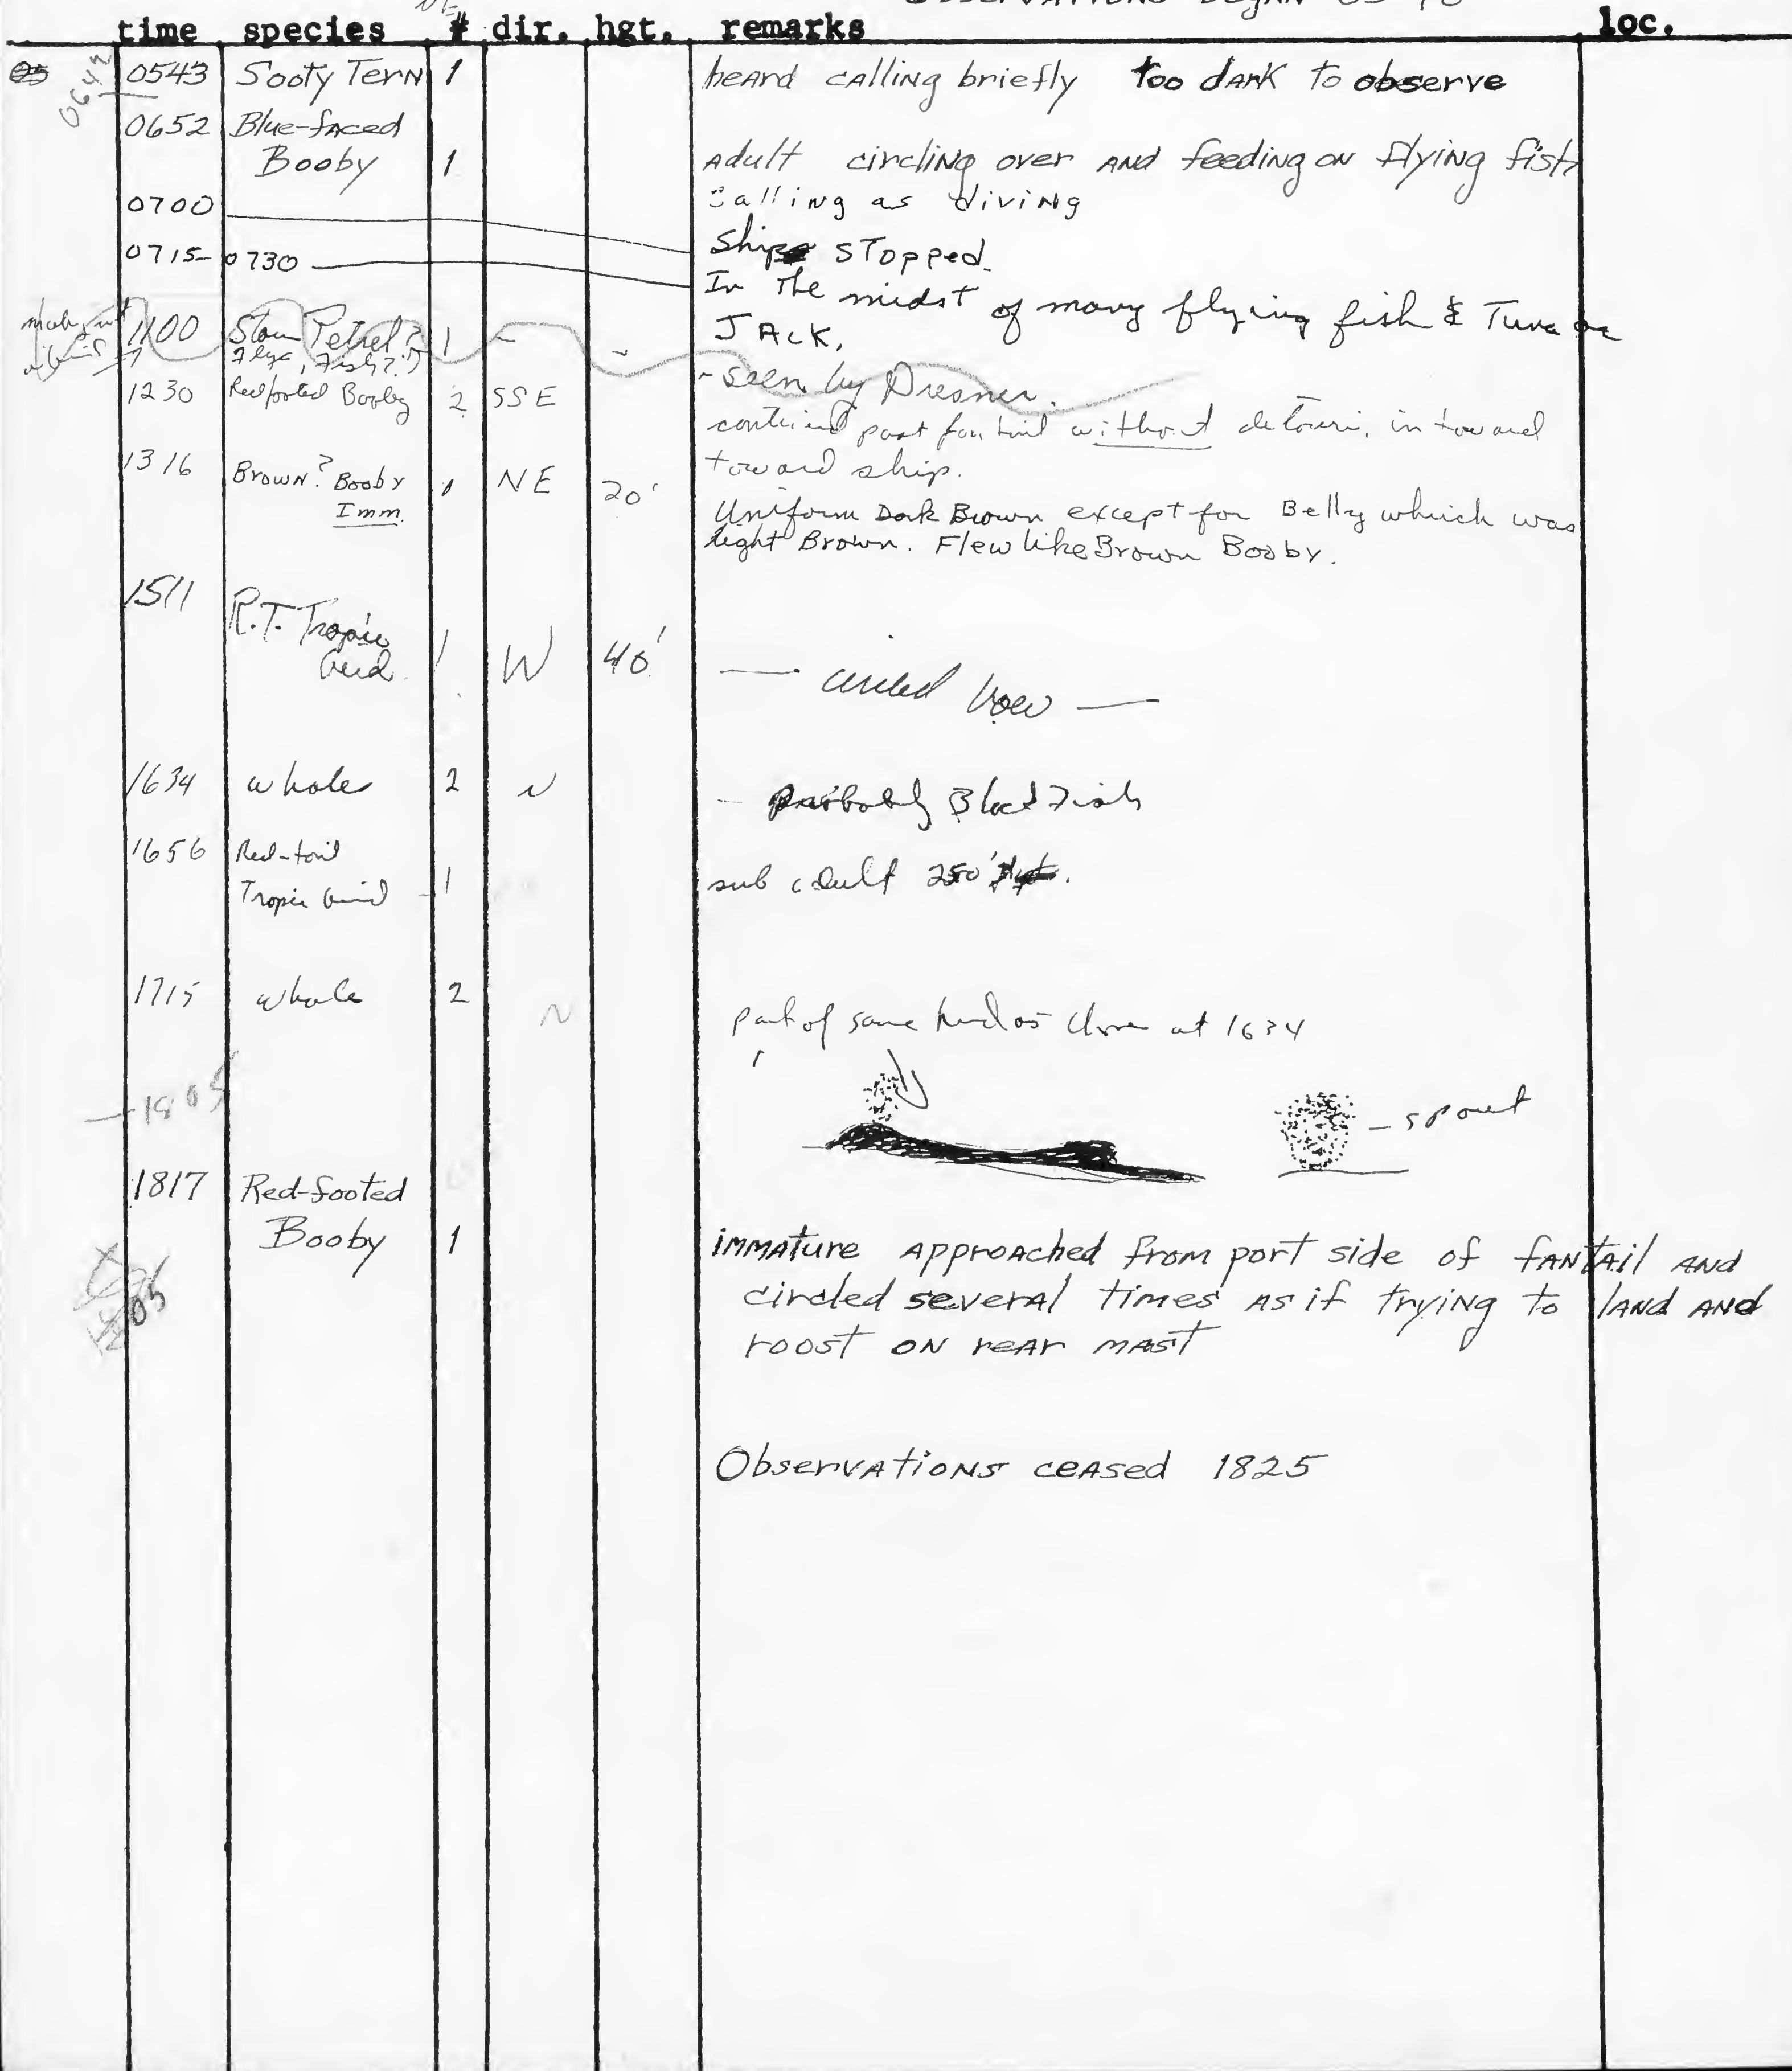 OBSERVATIONS BEGAN
time species # dir. hgt. remarks loc.
0642
0543 Sooty Tern 1 heard calling briefly too dark to observe
0652 Blue-faced
Booby 1 Adult circling over and feeding on flying fish
calling as diving
0700 Ship stopped.
0715-0730 In the midst of many flying fish & Tuna or
JACK.
1100 Storm Petrel? 1 - - - seen by Dresner.
Fish?
1230 Redfooted Booby 2 SSE past fantail without toward
toward ship.
1316 Brown? Booby 1 NE 20'
Imm.
Uniform Dark Brown except for Belly which was
light Brown. Flew like Brown Booby.
1511 R.T. Tropic
bird 1 W 40' — circled bow —
1634 whale 2 N - probably Blackfish
1656 Red-tail
Tropic bird 1 sub adult 250'
1715 whale 2 N part of same herd as at 1634
- 1805
- spout
1817 Red-footed
Booby 1 immature approached from port side of fantail and
circled several times as if trying to land and
roost on rear mast
Observations ceased 1825